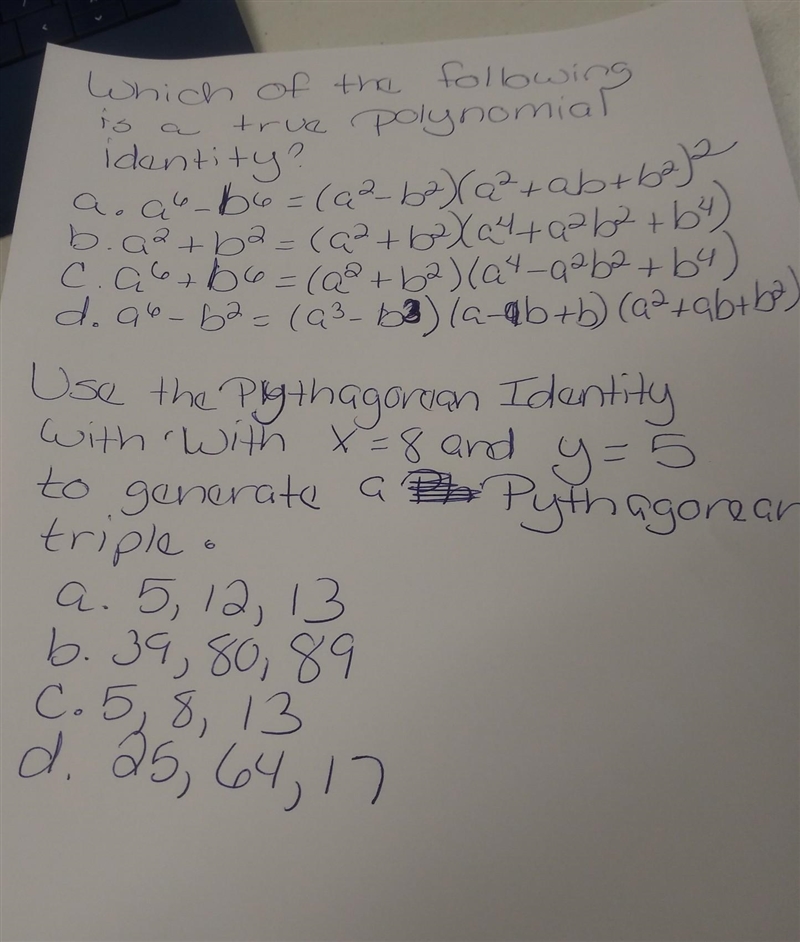 Which of the following
is a true polynomial
identity?
a. a⁶ - b⁶ = (a² - b²)(a² + ab + b²)²
b. a² + b² = (a² + b²)(a⁴ + a²b² + b⁴)
c. a⁶ + b⁶ = (a² + b²)(a⁴ - a²b² + b⁴)
d. a⁶ - b² = (a³ - b3)(a - ab + b)(a² + ab + b²)
Use the Pythagorean Identity
with with x = 8 and y = 5
to generate a Pythagorean
triple.
a. 5, 12, 13
b. 39, 80, 89
c. 5, 8, 13
d. 25, 64, 17